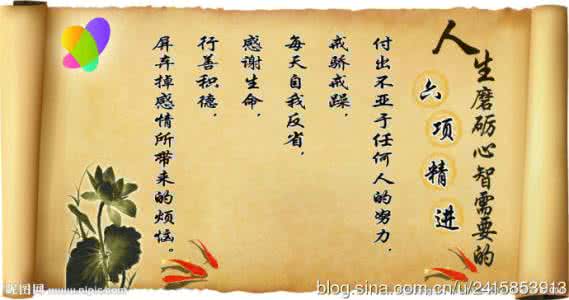 人生磨砺心智需要的
六项精进
付出不亚于任何人的努力，
戒骄戒躁，
每天自我反省，
感谢生命，
行善积德，
屏弃掉感情所带来的烦恼。
昵图网 www.nipic.com
blog.sina.com.cn/u/2415853913